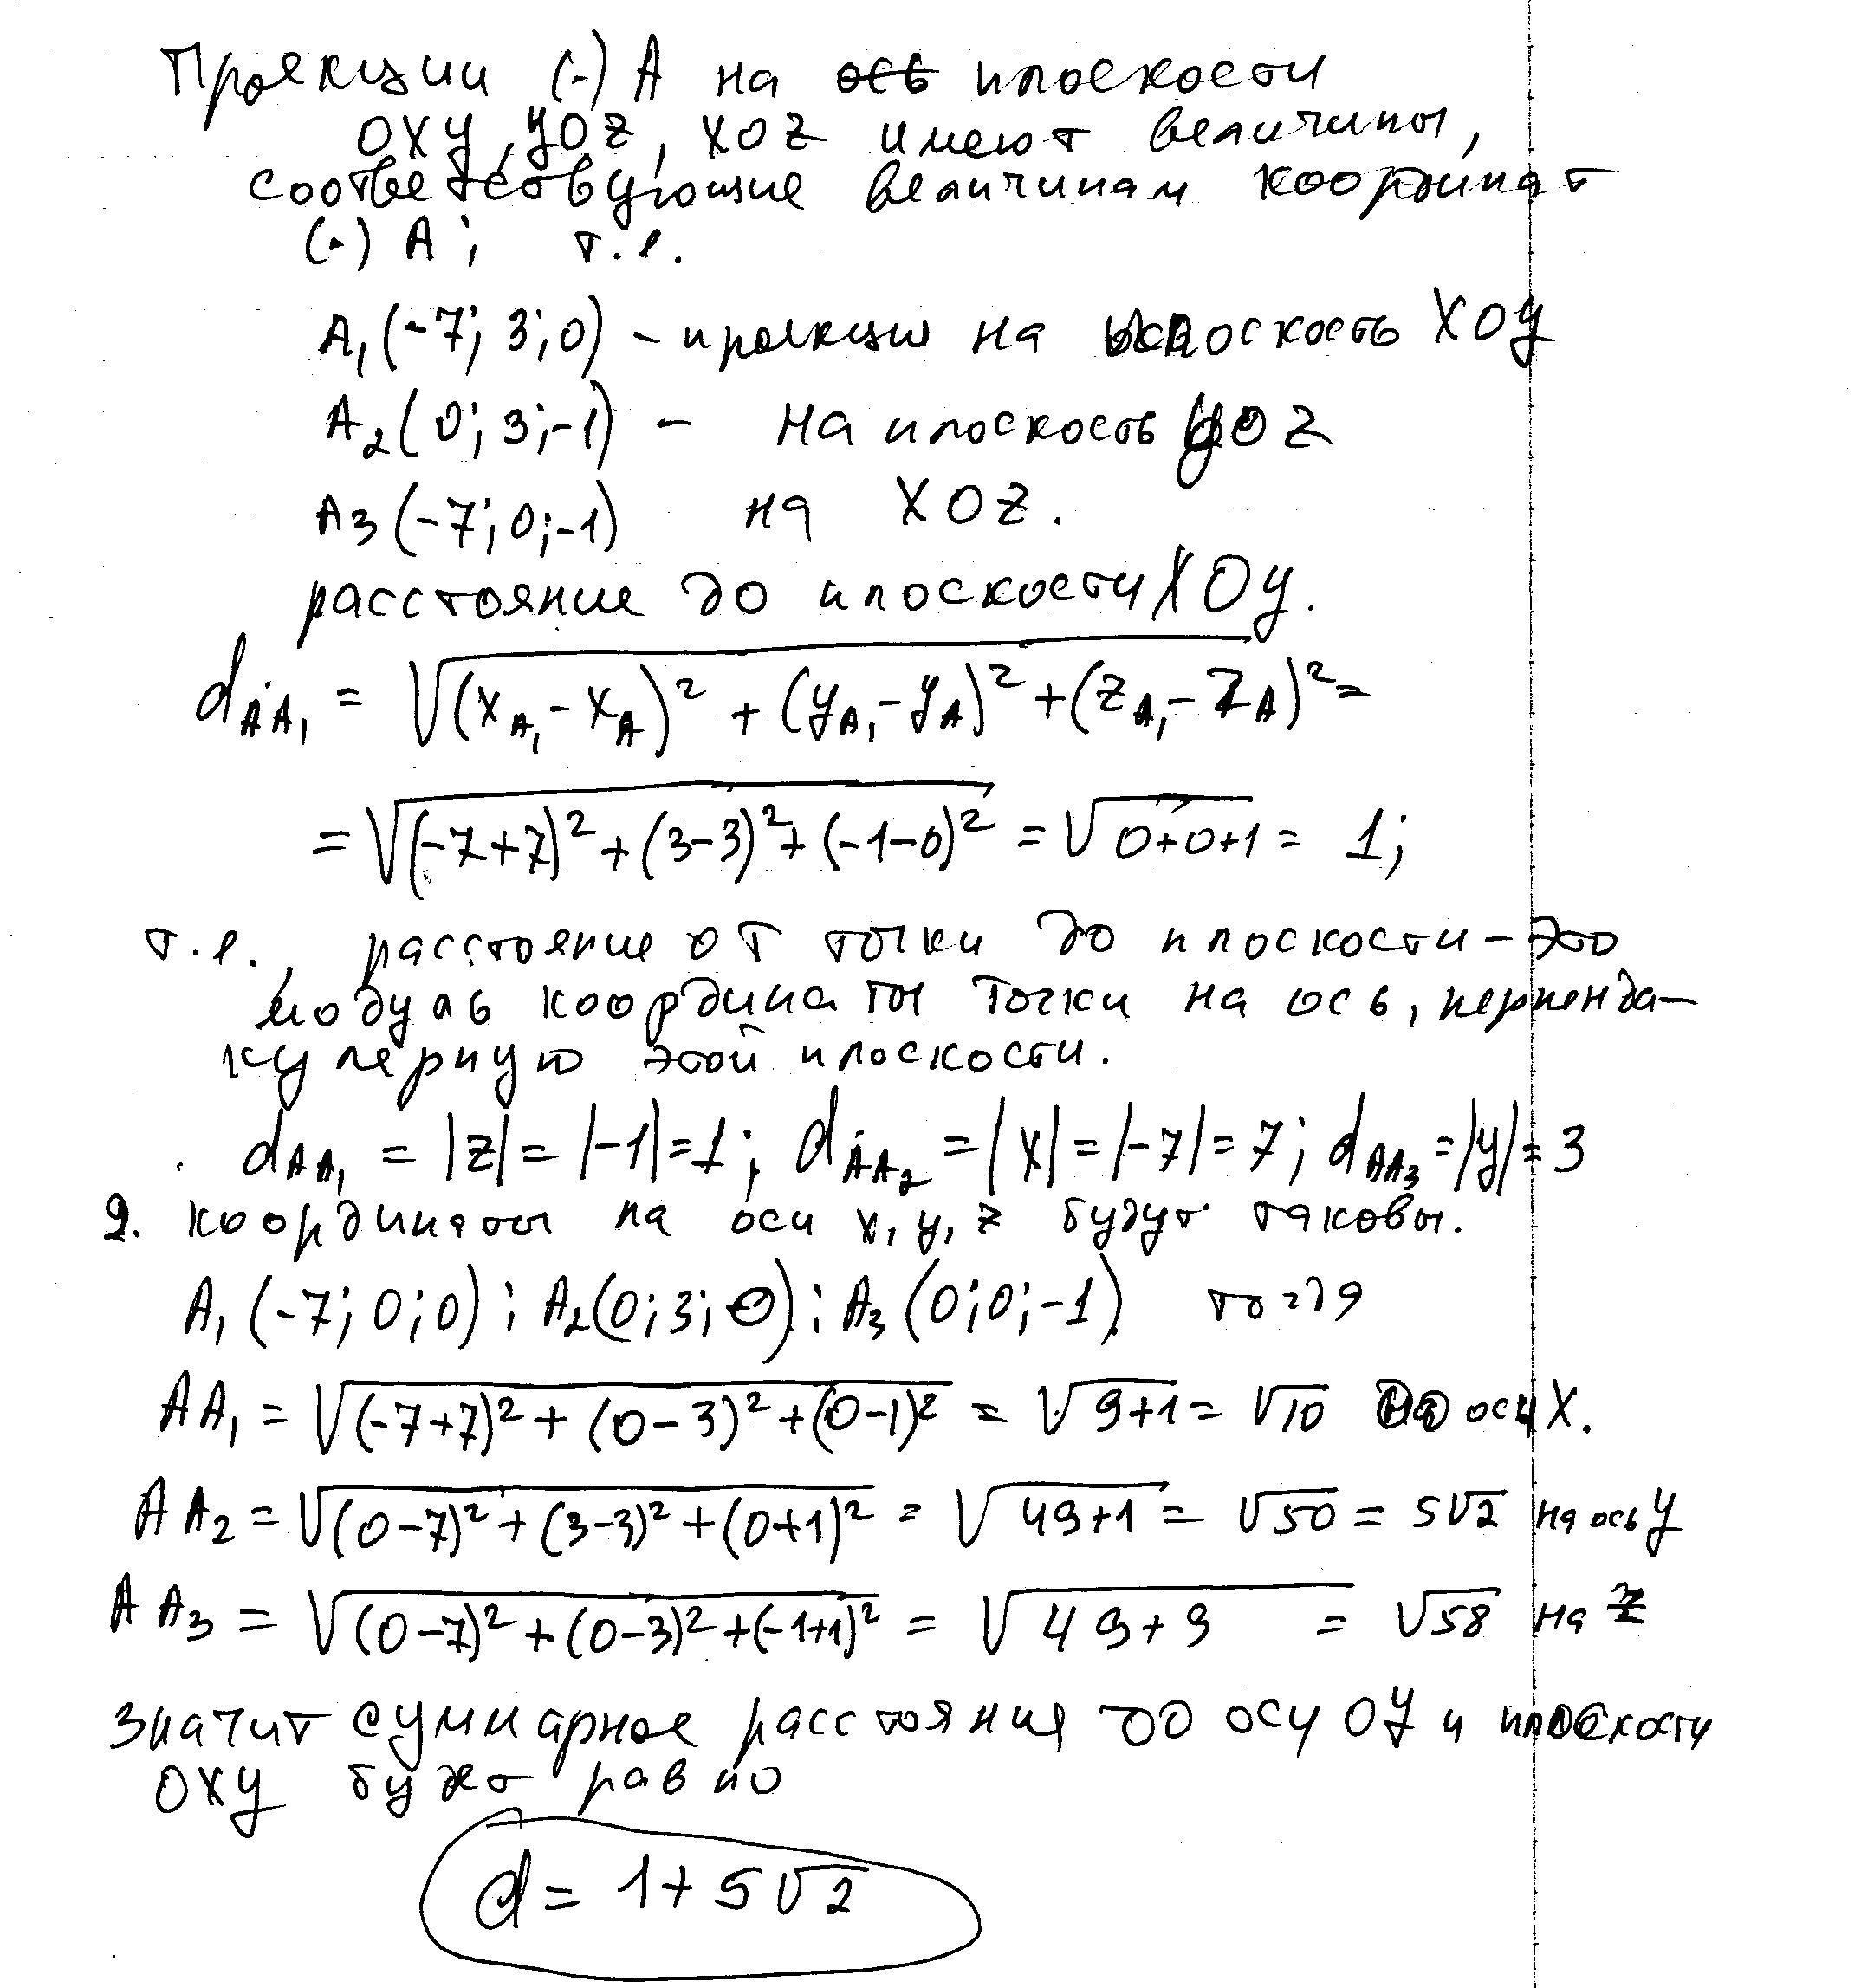 Проекции (·) A на ось плоскости
OXY, YOZ, XOZ имеют величины,
соответствующие величинам координат
(·) A; т.е.
A₁(-7; 3; 0) - проекция на плоскость XOY
A₂(0; 3; -1) - на плоскость YOZ
A₃(-7; 0; -1) на XOZ.
расстояние до плоскости XOY.
d_AA₁ = √((x_A₁ - x_A)² + (y_A₁ - y_A)² + (z_A₁ - z_A)²) =
= √((-7+7)² + (3-3)² + (-1-0)²) = √(0+0+1) = 1;
т.е., расстояние от точки до плоскости - это
модуль координаты точки на ось, перпенди-
кулярную этой плоскости.
d_AA₁ = |z| = |-1| = 1; d_AA₂ = |x| = |-7| = 7; d_AA₃ = |y| = 3
2. координаты на оси x, y, z будут таковы.
A₁(-7; 0; 0); A₂(0; 3; 0); A₃(0; 0; -1) тогда
AA₁ = √((-7+7)² + (0-3)² + (0-1)²) = √(9+1) = √10 оси X.
AA₂ = √((0-7)² + (3-3)² + (0+1)²) = √(49+1) = √50 = 5√2 на ось Y
AA₃ = √((0-7)² + (0-3)² + (-1+1)²) = √(49+9) = √58 на Z
Значит суммарное расстояния до оси OY и плоскости
OXY будет равно
d = 1+5√2